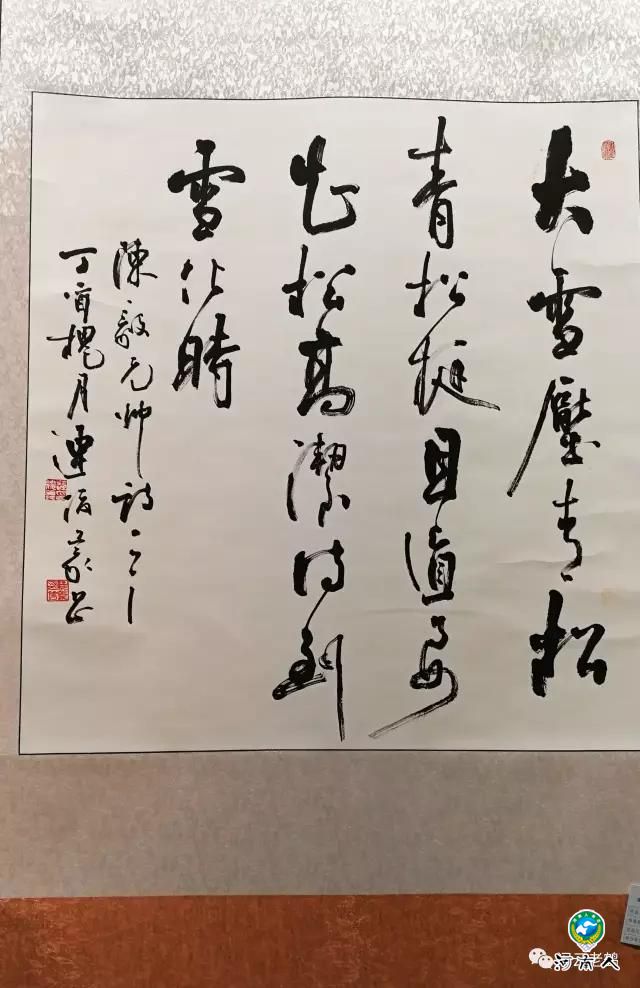 大雪壓青松
青松挺且直要
知松高潔待到
雪化時
陳毅元帥詩
丁酉槐月
河南人